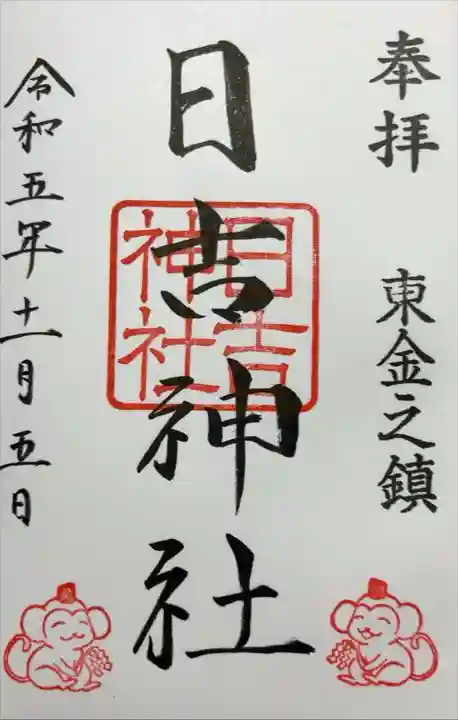 奉拝 東金之鎮
日吉神社
日吉
神社
令和五年十一月五日